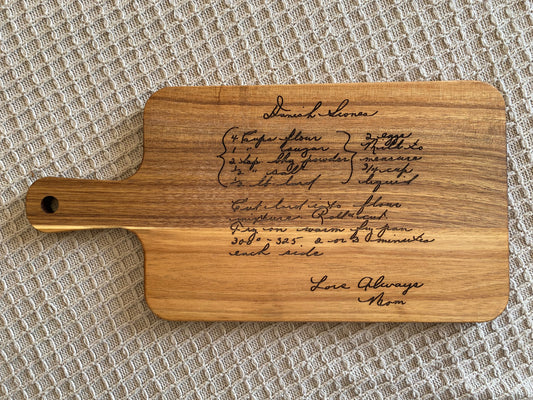 Danish Scones
4 Cups flour
1 " sugar
2 tsp bkg powder
1/2 " salt
1/2 lb lard
2 eggs
milk to
measure
3/4 cup
liquid
Cut lard into flour
mixture. Roll & cut.
Fry on warm fry pan
300° - 325. 2 or 3 minutes
each side
Love Always
Mom